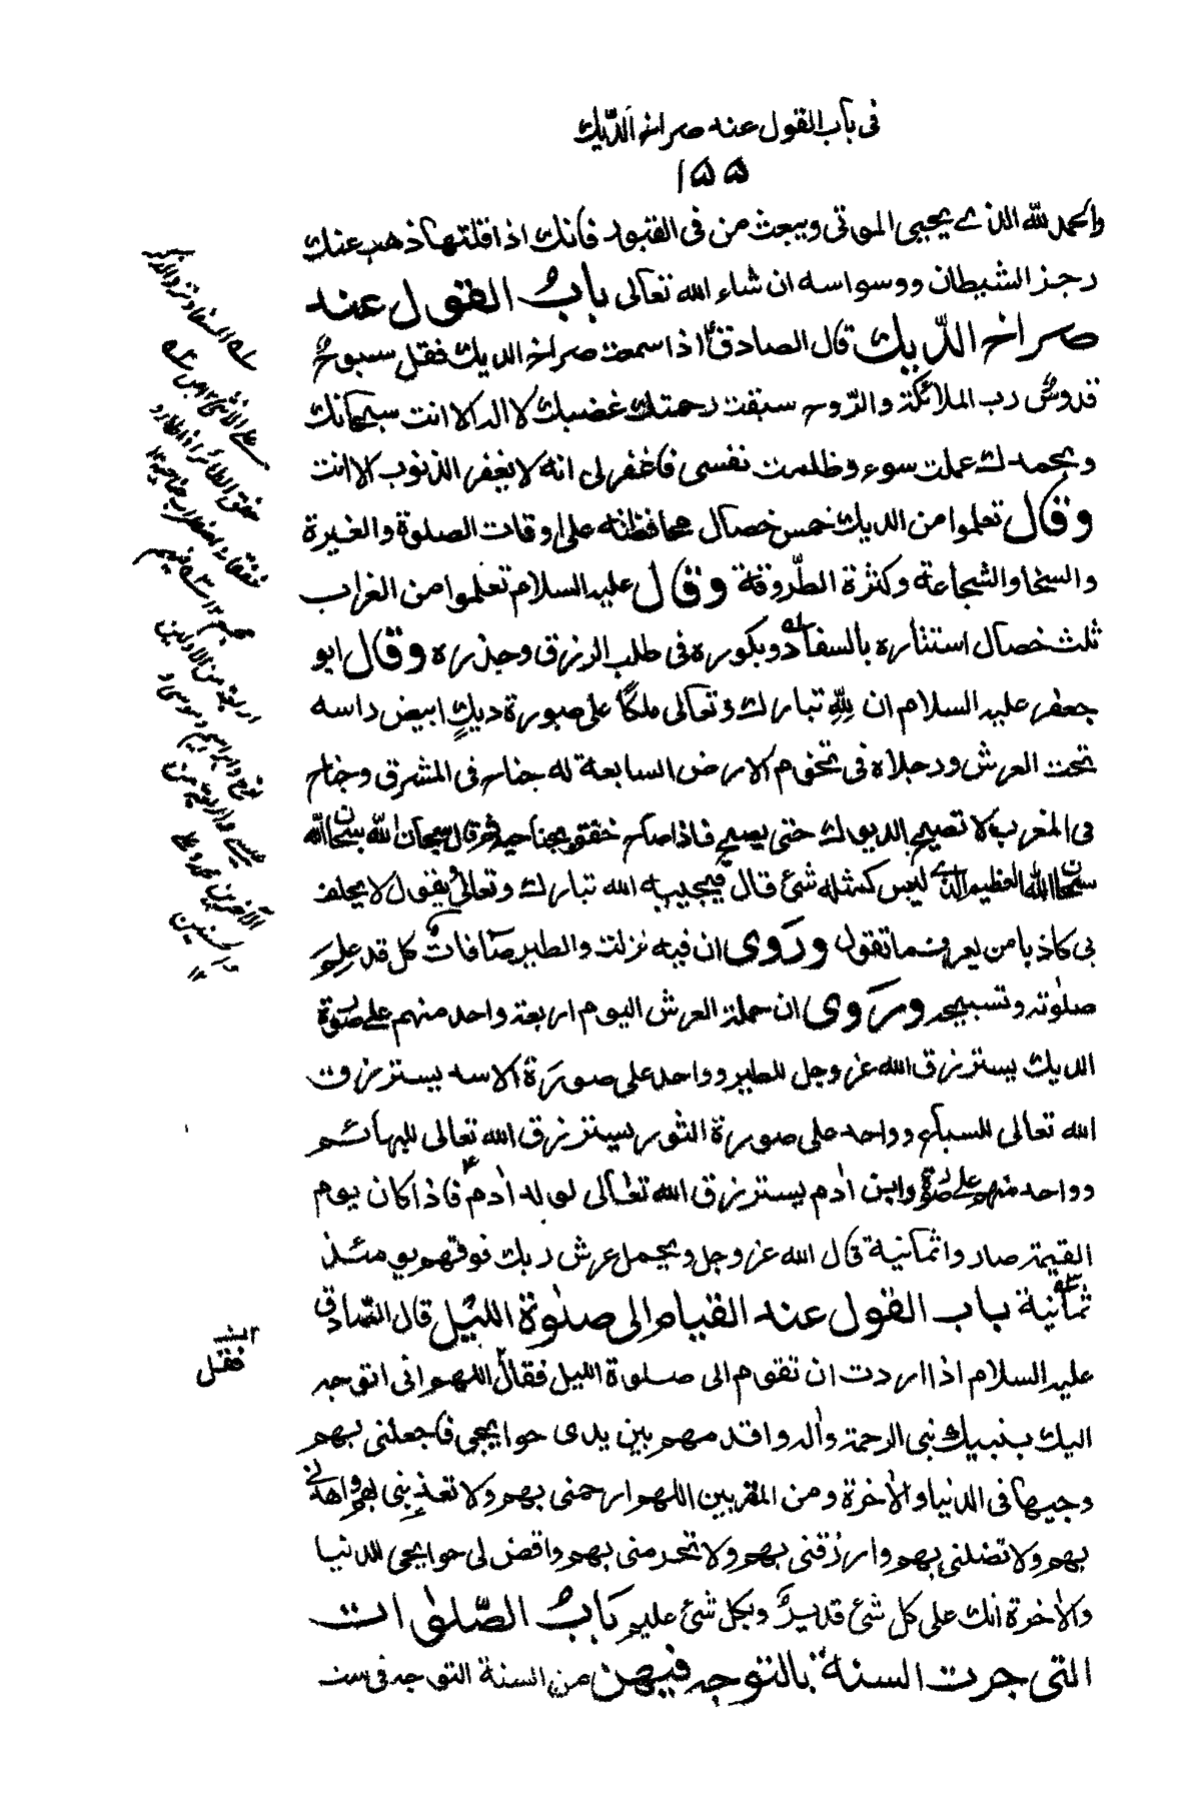 في باب القول عند صراخ الديك
١٥٥
والحمد لله الذي يحيي الموتى ويبعث من في القبور فانك اذا قلتها ذهب عنك
رجز الشيطان ووسواسه ان شاء الله تعالى بابُ القول عند
صراخ الديك قال الصادقؑ اذا سمعت صراخ الديك فقل سبوحٌ
قدوسٌ رب الملائكة والروح سبقت رحمتك غضبك لا اله الا انت سبحانك
وبحمدك عملت سوء وظلمت نفسي فاغفر لي انه لا يغفر الذنوب الا انت
وقال تعلموا من الديك خمس خصال محافظته على اوقات الصلوة والغيرة
والسخا والشجاعة وكثرة الطّروقة وقال عليه السلام تعلموا من الغراب
ثلث خصال استتاره بالسفاد وبكوره في طلب الرزق وحذره وقال ابو
جعفر عليه السلام ان لِلّهِ تبارك وتعالى ملكًا على صورة ديكٍ ابيض راسه
تحت العرش ورجلاه في تخوم الارض السابعة له جناح في المشرق وجناح
في المغرب لا تصيح الديوك حتى يصيح فاذا صاح خفق بجناحيه ثم قال سبحان الله سبحان الله
سبحان الله العظيم الذي ليس كمثله شئ قال فيجيبه الله تبارك وتعالى يقول لا يحلف
بي كاذبا من يعرف ما تقول ورَوى ان فيه نزلت والطير صافات كل قد علم
صلوته وتسبيحه ورَوى ان حملة العرش اليوم اربعة واحد منهم على صورة
الديك يسترزق الله عز وجل للطير وواحد على صورة الاسد يسترزق
الله تعالى للسباع وواحد على صورة الثور يسترزق الله تعالى للبهائم
وواحد منهم على صورة ابن ادم يسترزق الله تعالى لولد ادمؑ فاذا كان يوم
القيمة صاروا ثمانية قال الله عز وجل ويحمل عرش ربك فوقهم يومئذ
ثمانية باب القول عند القيام الى صلوة الليل قال الصّادق
عليه السلام اذا اردت ان تقوم الى صلوة الليل فقال اللهم اني اتوجه
اليك بنبيك نبي الرحمة واله واقدمهم بين يدى حوايجي فاجعلني بهم
وجيها في الدنيا والاخرة ومن المقربين اللهم ارحمني بهم ولا تعذبني بهم واهدني
بهم ولا تضلني بهم وارزقني بهم ولا تحرمني بهم واقض لي حوايجي للدنيا
والاخرة انك على كل شئ قديرٌ وبكل شئ عليم بَابُ الصّلوات
التي جرت السنة بالتوجه فيهن من السنة التوجه في ست
فقل